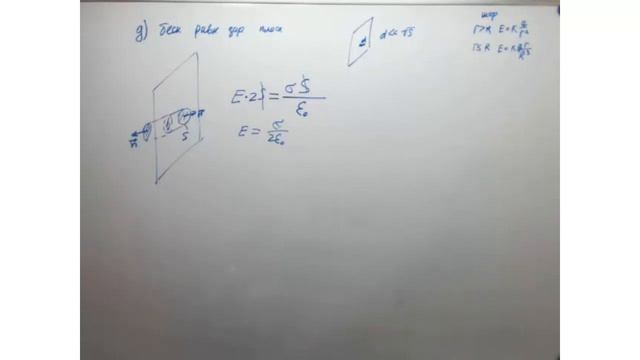 д) беск равн зар плоск
d << √S
шар
r>R E=K q/r²
r≤R E=K qr/R³
E·2S = σS/ε₀
E = σ/2ε₀
S